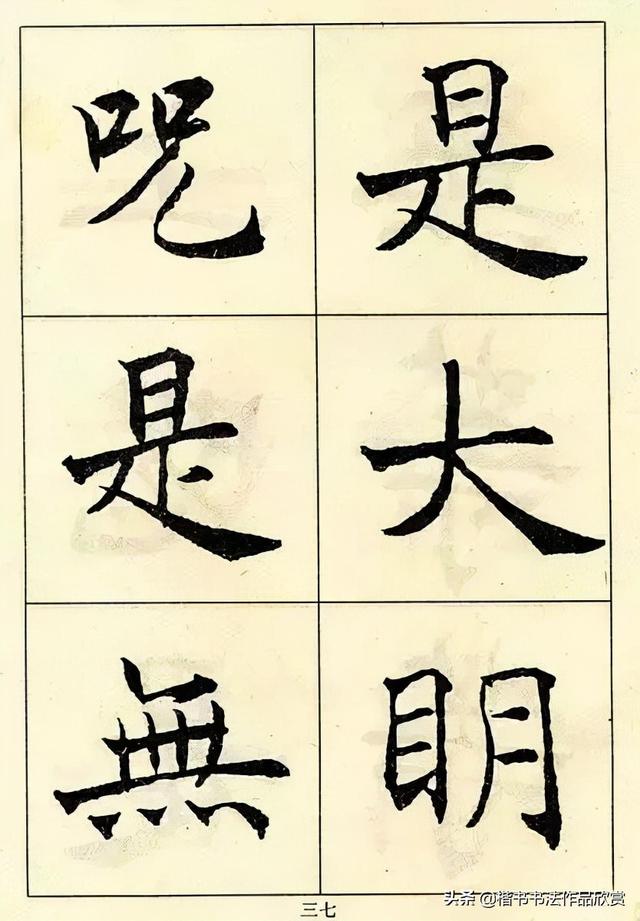 是大眀
呪是無
三七
头条 @楷书书法作品欣赏